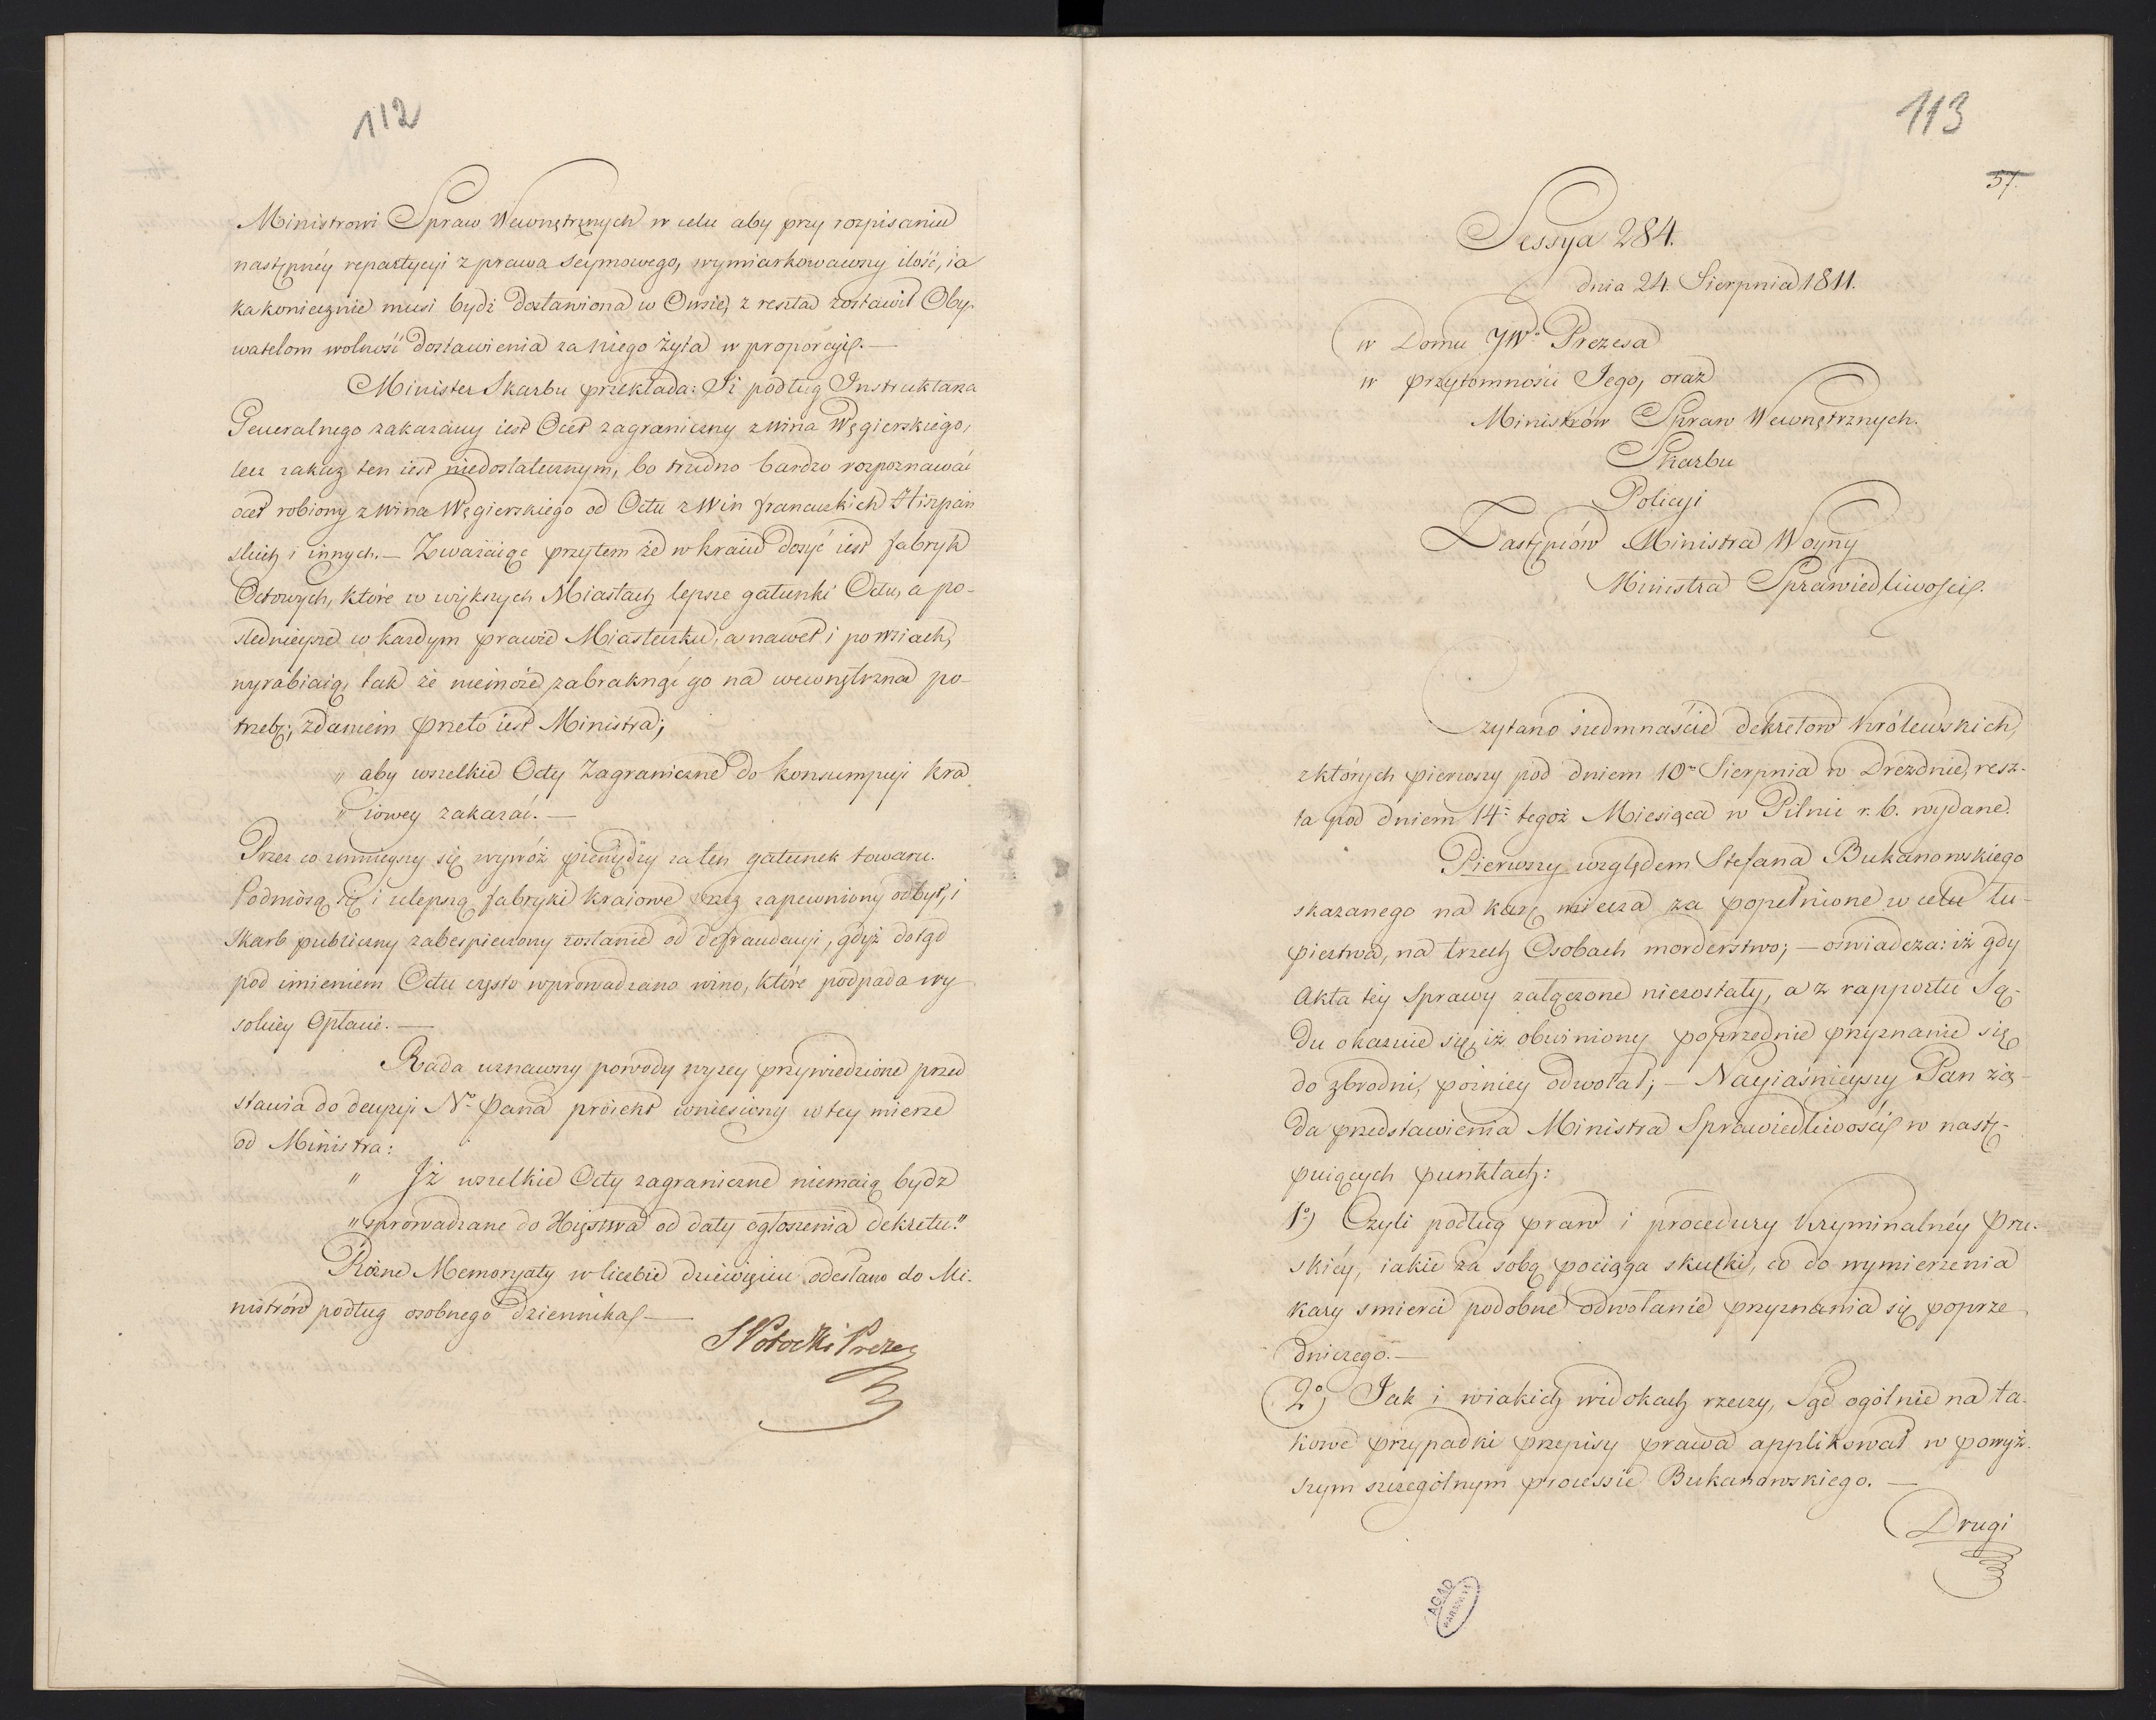 112
Ministrowi Spraw Wewnętrznych w celu aby przy rozpisaniu
następnéy repartycyi z prawa Seymowego, wymiarkowawszy ilość, ia
ka koniecznie musi bydź dostawiona w Owsie, z resztą zostawił Oby-
watelom wolność dostawienia za niego żyta w proporcyi. —
Minister Skarbu przekłada: Iż podług Instruktarza
Generalnego zakazany iest Ocet zagraniczny z wina Węgierskiego,
lecz zakaz ten iest niedostatecznym, bo trudno bardzo rozpoznawać
ocet robiony z Wina Węgierskiego od Octu z Win francuzkich Hiszpań
skich i innych. — Zważaiąc przytem że w kraiu dosyć iest fabryk
Octowych, które w większych Miastach lepsze gatunki Octu, a po-
sledniejsze w każdym prawie Miasteczku, a nawet i po wsiach,
wyrabiaią, tak że niemoże zabraknąć go na wewnętrzną po-
trzebę; zdaniem przeto iest Ministra;
„ aby wszelkie Octy Zagraniczne do konsumpcyi kra
„ iowey zakazać. —
Przez co zmnieyszy się wywóz pieniędzy za ten gatunek towaru.
Podniosą się i ulepszą fabryki kraiowe przez zapewniony odbyt, i
Skarb publiczny zabespieczony zostanie od defraudacyi, gdyż dotąd
pod imieniem Octu często wprowadzano wino, które podpada wy
sokiey Opłacie. —
Rada uznawszy powody wyżey przywiedzione przed
stawia do decyzyi No Pana proiekt wniesiony w tey mierze
od Ministra:
„ Iż wszelkie Octy zagraniczne niemaią bydz
„ sprowadzane do Xięstwa od daty ogłoszenia dekretu."
Rożne Memoryały w liczbie dziewięciu odesłano do Mi-
nistrów podług osobnego dziennika. —
SPotocki Prezes
113
57.
Sessya 284.
dnia 24. Sierpnia 1811.
w Domu JWo Prezesa
w przytomności Jego, oraz
Ministrów Spraw Wewnętrznych.
Skarbu
Policyi
Zastępców Ministra Woyny
Ministra Sprawiedliwości.
Czytano siedmnaście dekretow Królewskich,
z których pierwszy pod dniem 10o Sierpnia w Dreźdnie, resz-
ta pod dniem 14o tegoż Miesiąca w Pilnic r. b. wydane.
Pierwszy względem Stefana Bukanowskiego
skazanego na karę miecza za popełnione w celu łu-
piestwa, na trzech Osobach morderstwo; — oświadcza: iż gdy
Akta téy Sprawy załączone niezostały, a z rapportu Są-
du okazuie się, iż obwiniony poprzednie przyznanie się
do zbrodni, poźniey odwołał; — Nayiaśnieyszy Pan żą-
da przedstawienia Ministra Sprawiedliwości w nastę-
puiących punktach:
1o) Czyli podług praw i procedury kryminalnéy Pru-
skiéy, iakie za sobą pociąga skutki, co do wymierzenia
kary smierci podobne odwołanie przyznania się poprze
dniczego. —
2o) Jak i w iakich widokach rzeczy, Sąd ogólnie na ta-
kowe przypadki przepisy prawa applikował w powyż-
szym szczególnym processie Bukanowskiego. —
Drugi
AGAD
WARSZAWA